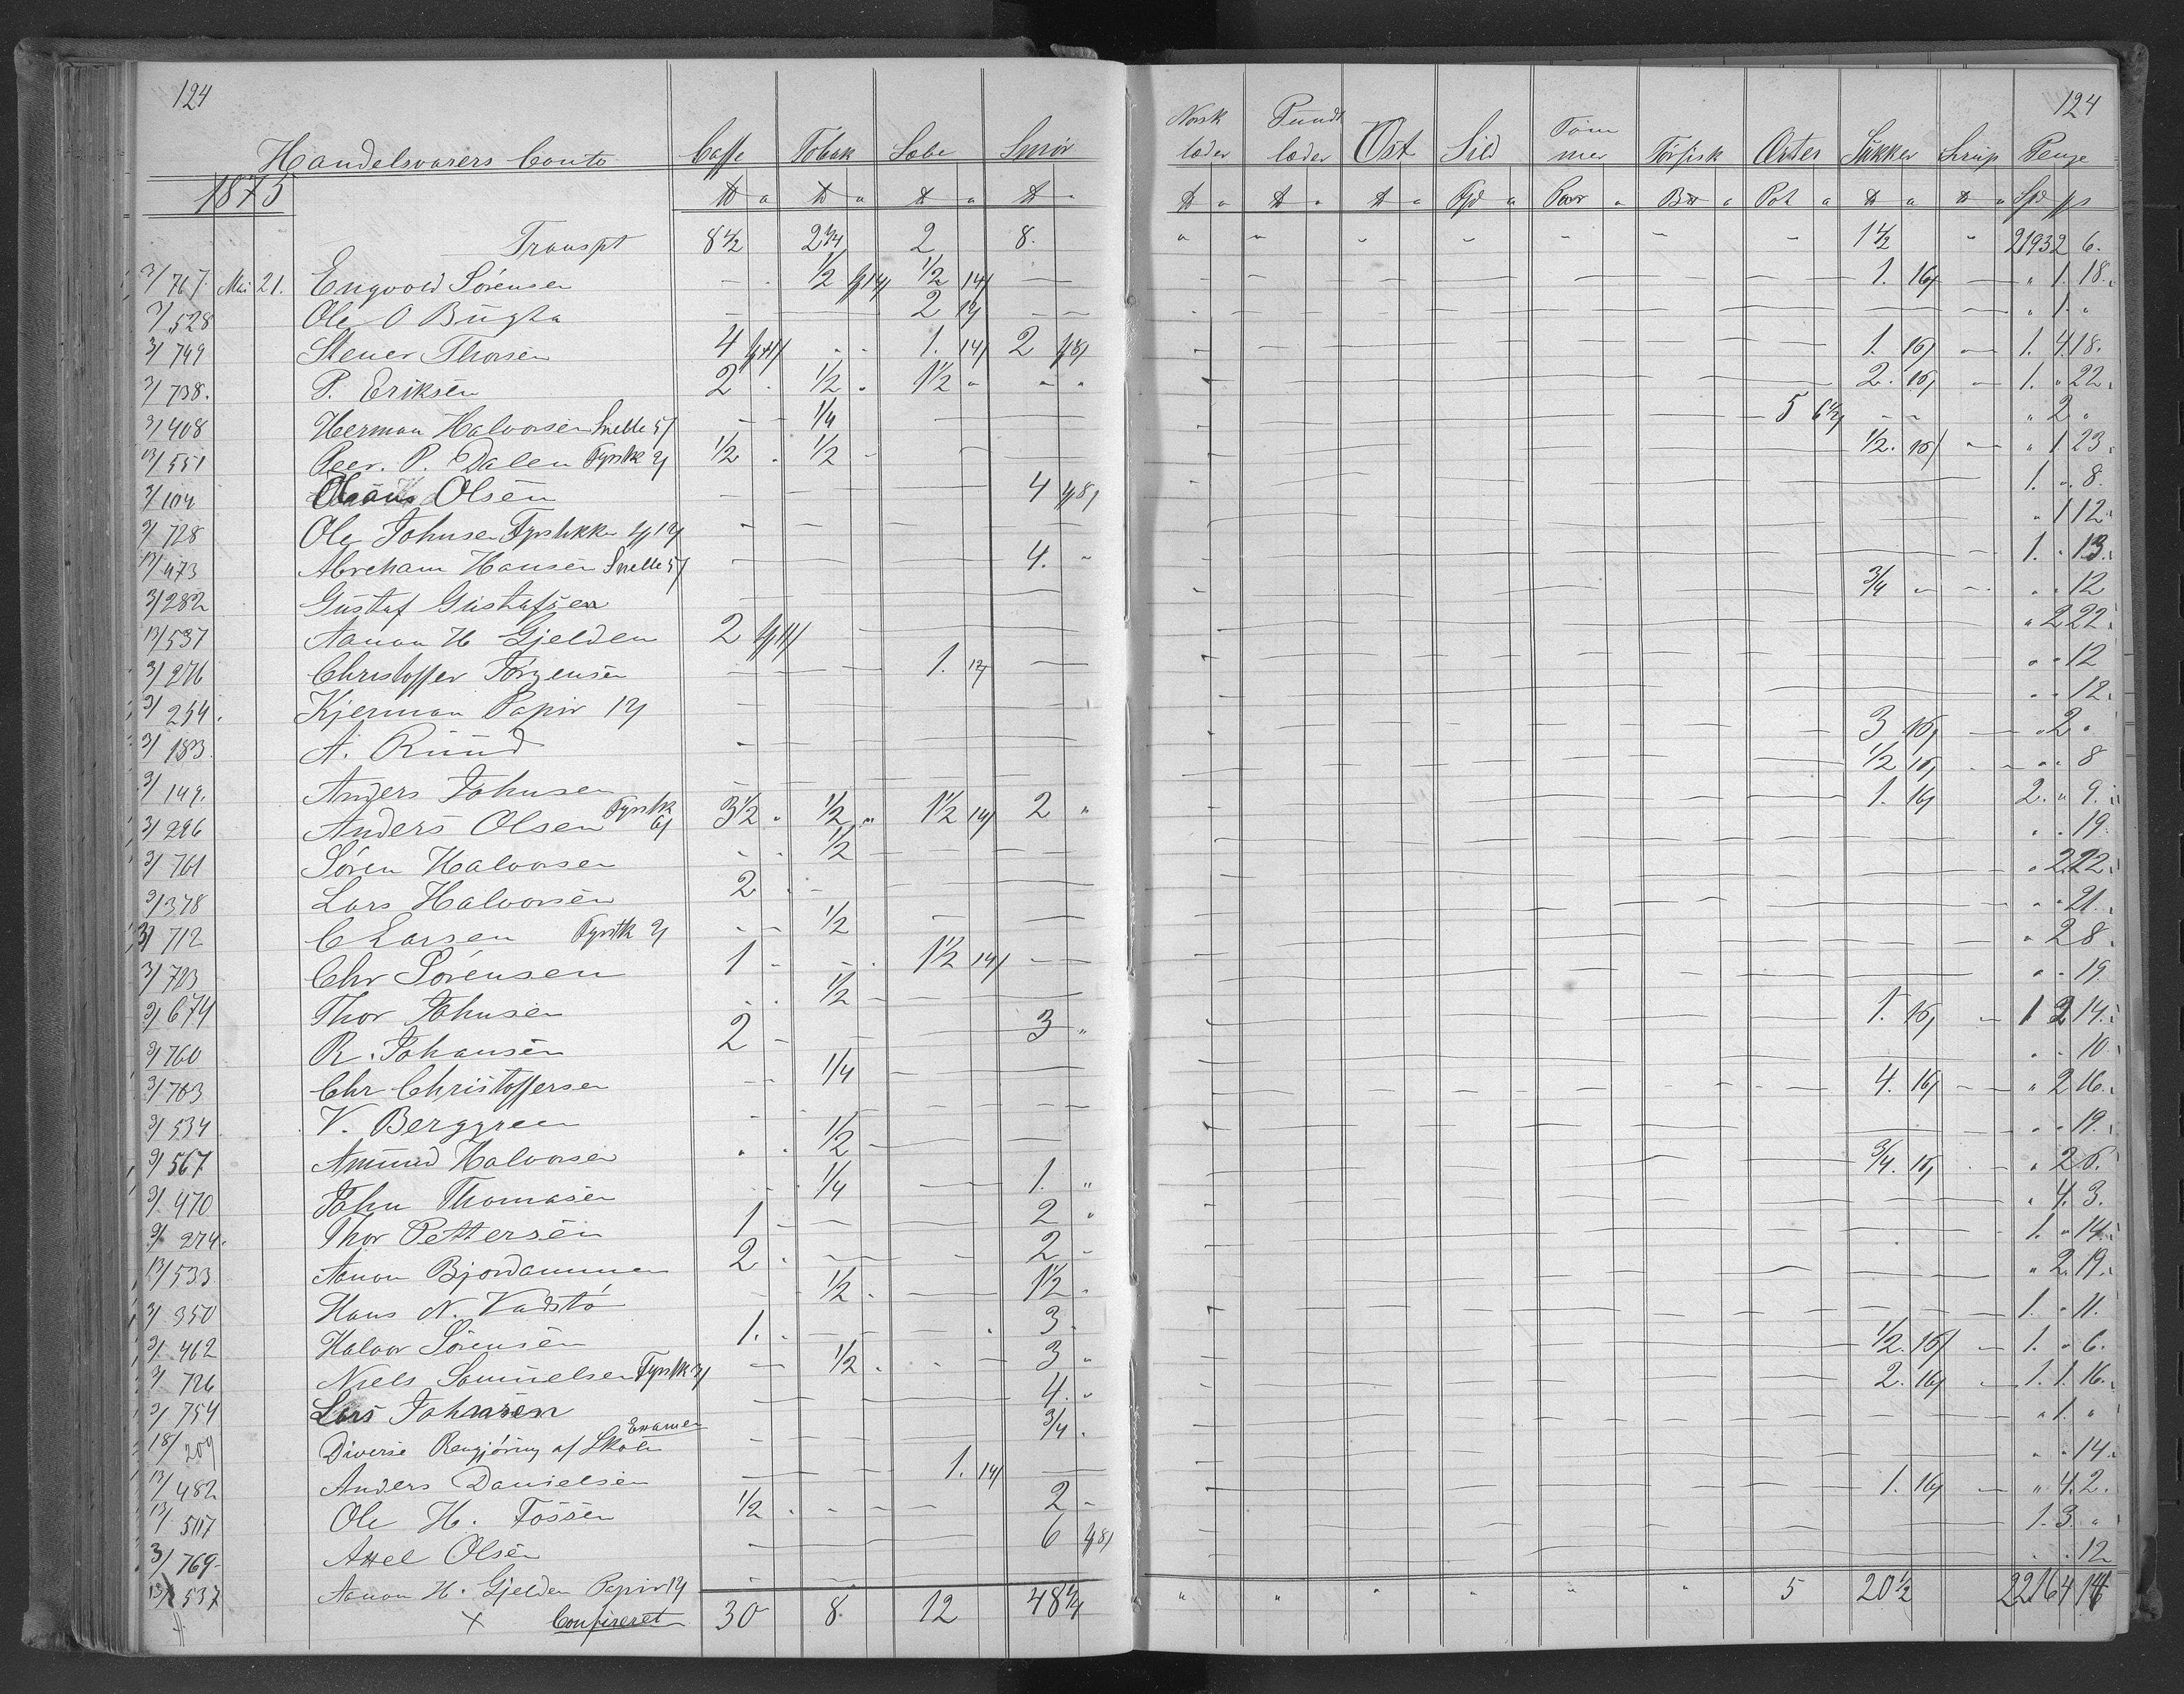 124
124
Handelsvarers Conto Caffe Tobak Sæbe Smör Norsk læder Pundt læder Ost Sild Töm mer Törfisk Erter Sukker Sirup Penge
1875
Transpt 8 1/2 2 3/4 2 8. 1 1/2 2193 2 6.
3/767. Mai 21. Engvold Sörensen 1/2 1/2 14/ 1. 16/ " 1. 18.
7/528 Ole O Bugta 2 14/ " 1. "
3/749 Stener Thorsen 4 1. 14/ 2 1. 16/ 1. 4. 18.
3/738. P. Eriksen 2 1/2 1 1/2 2. 16/ 1. " 22.
3/408 Herman Halvorsen Snelle 5/ 1/4 5 6 1/2/ " 2 "
13/551 Peer. P. Dalen Fyrstk 4/ 1/2 1/2 1/2. 16/ " 1 23.
3/104 Olsen 4 1. " 8.
3/728 Ole Johnsen Fyrstikker " 1 12.
13/473 Abraham Hansen Snelle 5/ 4. 1. " 13.
3/282 Gustaf Gustafsen 3/4 " " 12
13/537 Aanon H Gjelden 2 " 2 22.
3/276 Christoffer Jörgensen 1. 12/ " " 12
3/254. Kjerman Papir 12/ " " 12.
3/183. A. Ruud 3 16/ " 2 "
3/149. Anders Johnsen 1/2 16/ " " 8
3/296 Anders Olsen Fyrstk 3 1/2 1/2 1 1/2 14/ 2 " 1. 16/ 2. " 9.
3/761 Sören Halvorsen 1/2 " " 19.
3/378 Lars Halvorsen 2 " 2 22.
3/712 C Larsen Fyrstk 2/ 1/2 " " 21.
3/723 Chr Sörensen 1 1 1/2 14/ " 2 8.
3/674 Thor Johnsen 1/2 " " 19.
3/760 R. Johansen 2 3 " 1. 16/ 1 2 14.
3/763 Chr Christoffersen 1/4 " " 10
3/534 V. Berggreen 4. 16/ " 2 16.
3/567 Amund Halvorsen 1/2 " " 19.
3/470 John Thomasen 1/4 1. " 3/4. 16/ " 2 6.
3/274. Thor Pettersen 1 2 " " 4. 3.
13/533 Aanon Bjordammen 2 2 1. " 14.
3/350 Hans N. Vadstö 1/2 1 1/2 " 2. 19.
3/462 Halvor Sörensen 1. 3. 1. " 11.
3/726 Niels Samuelsen Fyrstk 2/ 1/2 3 1/2. 16/ 1. " 6.
3/754 Lars Johnsen 4. 2. 16/ 1. 1. 16.
18/209 Diverse Rengjöring af Skolen Examen 3/4. " 1. "
13/482 Anders Danielsen 1. 14/ " " 14.
13/517 Ole H. Fossen 1/2 2 1. 16/ " 4. 2.
3/769 Axel Olsen 6 1. 3. "
13/537 Aanon H. Gjelden Papir 12/ " " 12
x Confereret 30 8 12 48 1/4 5 20 1/2 2216 4 14